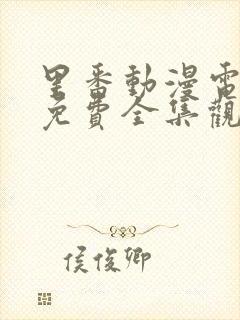 里番動漫電
免費全集觀
侯俊卿